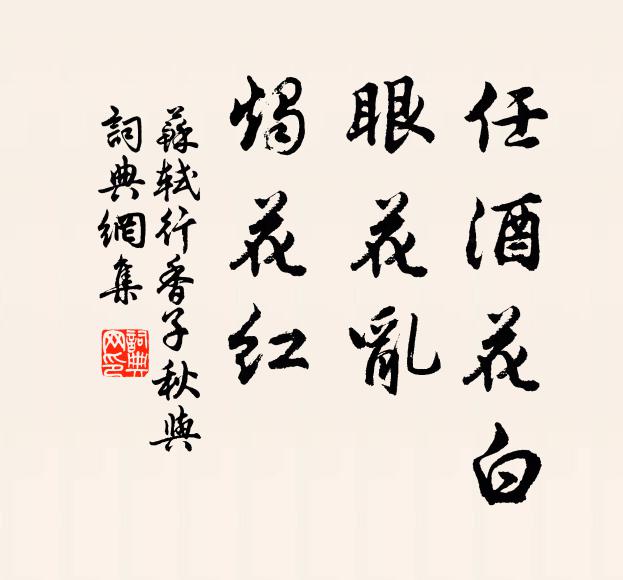 任酒花白
眼花亂
燭花红
蘇軾行香子秋與
詞典網集
詞典网印